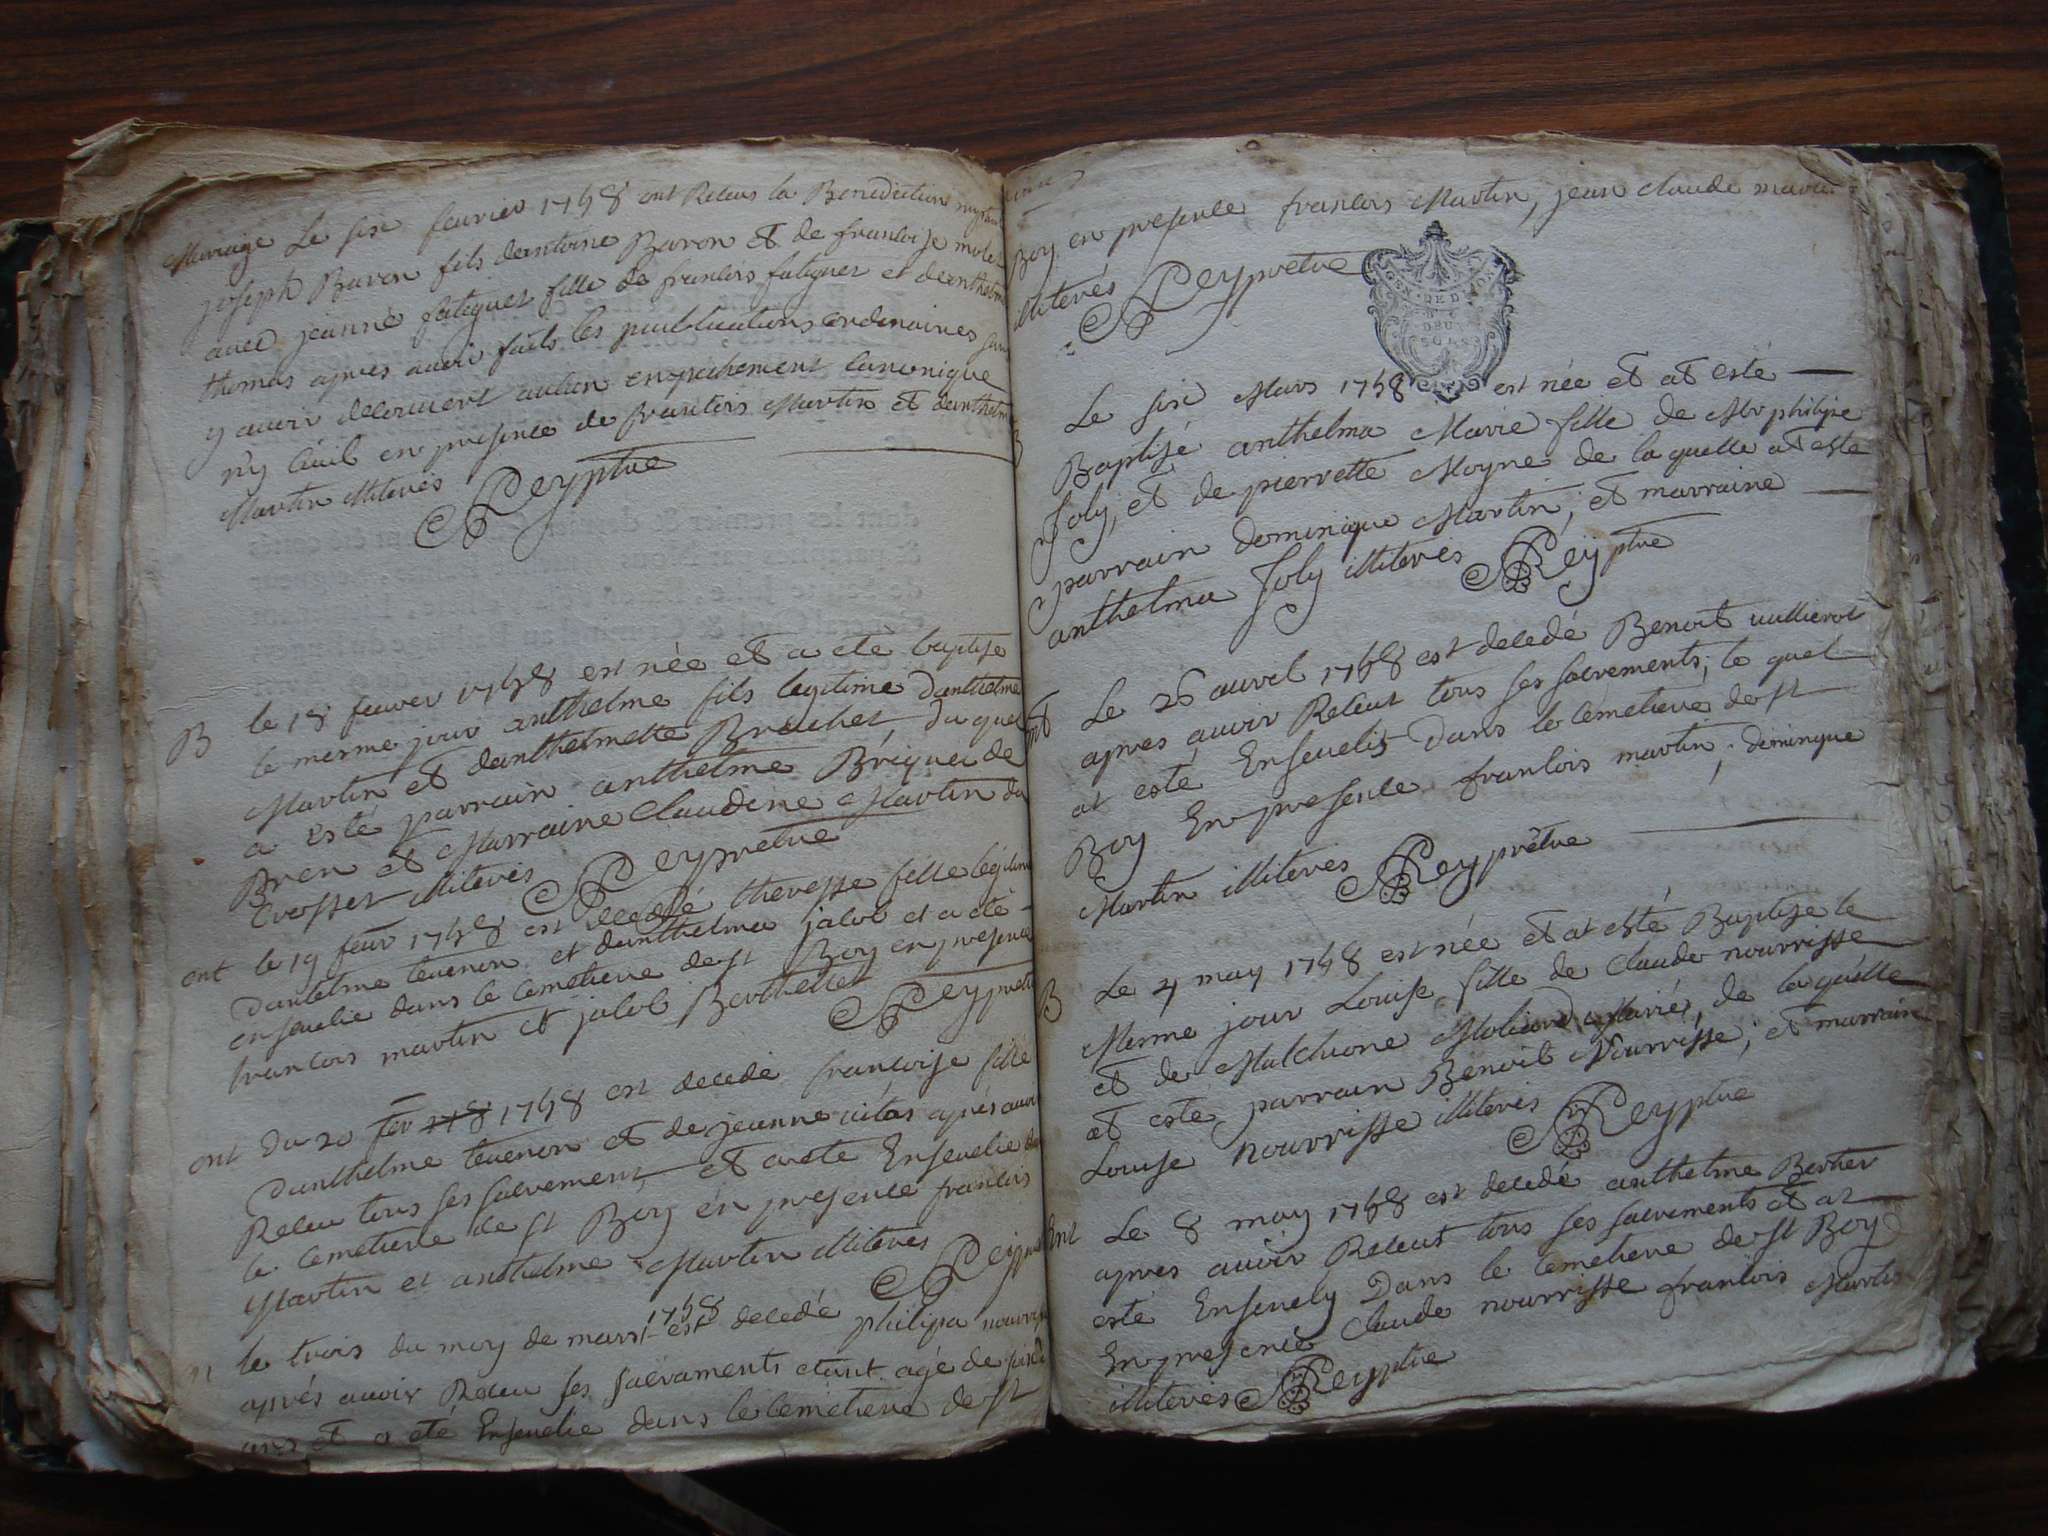 Mariage Le six feuvrier 1758 ont Receus la Benediction
joseph Baron fils dantoine Baron et de francoise molet
avec jeanne fatiguet fille de francois fatiguet et danthelma
thomas apres avoir faits les publications ordinaires sans
y avoir decouvert aucun empechement canonique
n'y civil en presence de francois Martin et danthelme
Martin illiterés Rey ptre
B le 18 feuvrer 1758 est née et a eté baptise
le meme jour anthelme fils legitime danthelme
Martin et danthelmette Brachet du quel
a esté parrain anthelme Briquei de
Bren et Marraine Claudine Martin du
Crosset illiterés Rey pretre
ent le 19 feuv 1758 est decedé theresse fille legitime
dantelme tevenon et danthelma jacob et a eté
ensevelie dans le cemetiere de st Boy en presence
francois martin et jacob Berthellet Rey pretre
ent Du 20 fev 1758 est decede francoise fille
danthelme tevenon et de jeanne vitas aprés avoir
Receu tous ses sacrement et a eté Ensevelie dans
le cemetiere de st Boy en presence francois
Martin et anthelme Martin illiterés Rey
le trois du moy de mars 1758 est decedé philipa nourrisse
aprés avoir Receu ses sacraments etant agé de
ans et a eté Ensevelie dans le cemetiere de st
Boy en presence francois Martin, jean claude
illiterés Rey pretre
GEN DE DIJON
DEUX
SOLS
B Le six Mars 1758 est née et at esté
Baptisé anthelma Marie fille de Mr philipe
Joly, et de pierrette Moyne de la quelle at este
parrain dominique Martin, et marraine
anthelma Joly illiterés Rey ptre
ent Le 26 auvril 1758 est decedé Benoit vullierot
apres avoir Receut tous ses sacrements, le quel
at esté Ensevelis Dans le cemetiere de st
Boy En presence francois martin, dominique
Martin illiterés Rey prêtre
B Le 4 may 1758 est née et at esté Baptise le
Meme jour Louise fille de Claude nourrisse
et de Malchione Moliard Mariés, de laquelle
at esté parrain Benoit Nourrisse, et marraine
Louise nourrisse illiterés Rey ptre
Ent Le 8 may 1758 est decedé anthelme Bertier
apres avoir Receut tous ses sacrements et at
esté Ensevely Dans le cemetiere de st Boy
En presence Claude nourrisse francois Martin
illiterés Rey ptre